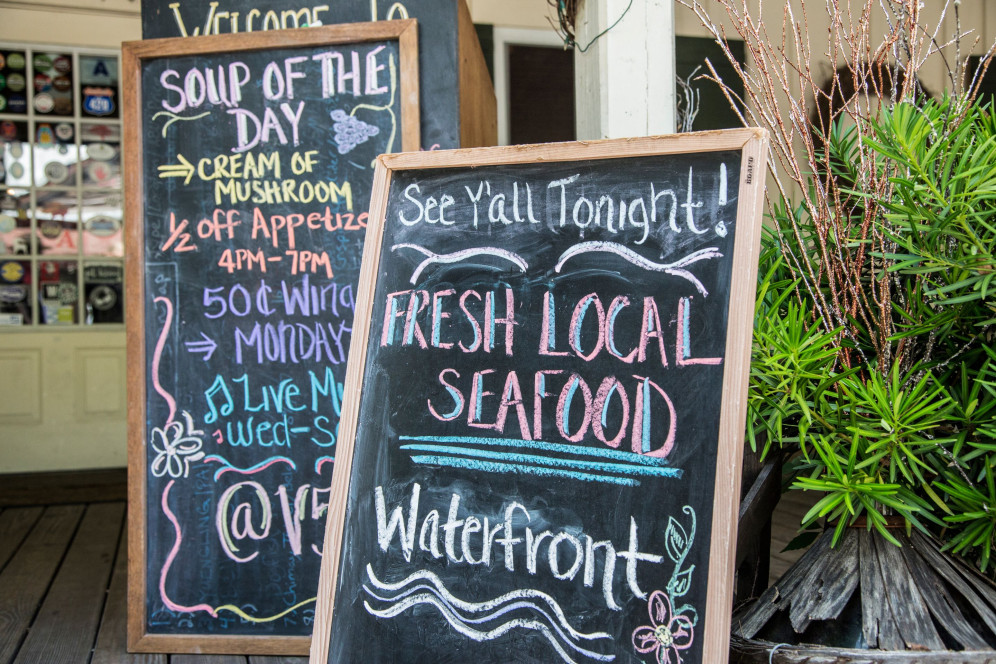 Welcome to
SOUP OF THE
DAY
CREAM OF
MUSHROOM
½ off Appetize
4PM-7PM
50¢ Wing
MONDAY
Live Mu
Wed-S
@V5
See Y'all Tonight!
FRESH LOCAL
SEAFOOD
Waterfront